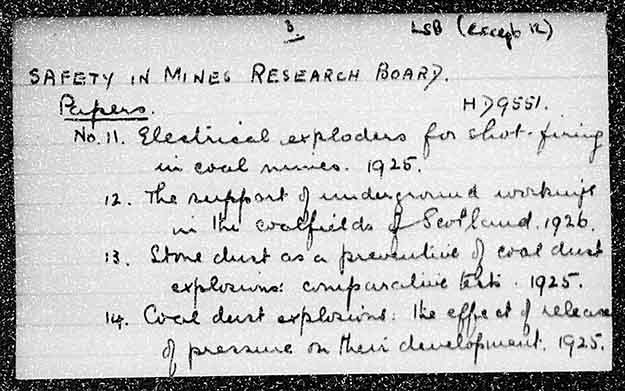 3. LSB (except 12)
SAFETY IN MINES RESEARCH BOARD.
Papers. HD9551.
No. 11. Electrical exploders for shot-firing
in coal mines. 1925.
12. The support of underground workings
in the coalfields of Scotland. 1926.
13. Stone dust as a preventive of coal dust
explosions: comparative tests. 1925.
14. Coal dust explosions: the effect of release
of pressure on their development. 1925.